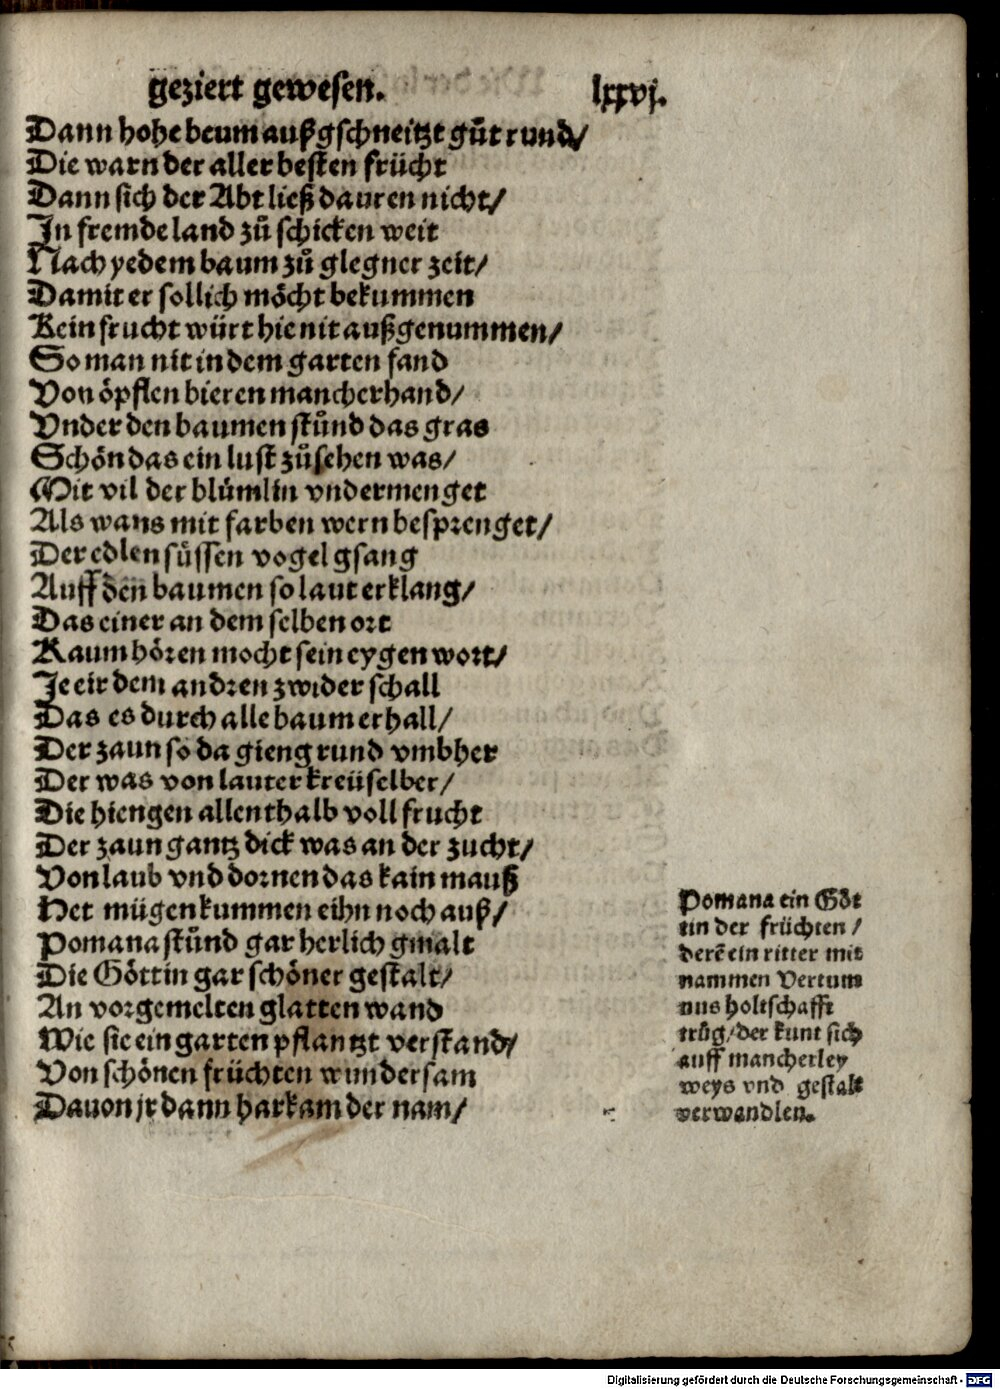 geziert gewesen. lxxvj.
Dann hohe beum außgschneitzt gůt rund/
Die warn der aller besten frücht
Dann sich der Abt ließ dauren nicht/
In fremde land zů schicken weit
Nach yedem baum zů glegner zeit/
Damit er sollich möcht bekummen
Kein frucht würt hie nit außgenummen/
So man nit in dem garten fand
Von öpflen bieren mancherhand/
Vnder den baumen stůnd das gras
Schön das ein lust zůsehen was/
Mit vil der blůmlin vndermenget
Als wans mit farben wern besprenget/
Der edlen süssen vogel gsang
Auff den baumen so laut erklang/
Das einer an dem selben ort
Kaum hören mocht sein eygen wort/
Je eir dem andren zwider schall
Das es durch alle baum erhall/
Der zaun so da gieng rund vmbher
Der was von lauter kreüselber/
Die hiengen allenthalb voll frucht
Der zaun gantz dick was an der zucht/
Von laub vnd dornen das kain mauß
Het mügen kummen eihn noch auß/
Pomana stůnd gar herlich gmalt
Die Göttin gar schöner gestalt/
An vorgemelten glatten wand
Wie sie ein garten pflantzt verstand/
Von schönen früchten wundersam
Dauon jr dann har kam der nam/
Pomana ein Göt
tin der früchten /
derē ein ritter mit
nammen Vertum
nus holtschafft
trůg/der kunt sich
auff mancherley
weys vnd gestalt
verwandlen.
Digitalisierung gefördert durch die Deutsche Forschungsgemeinschaft - DFG